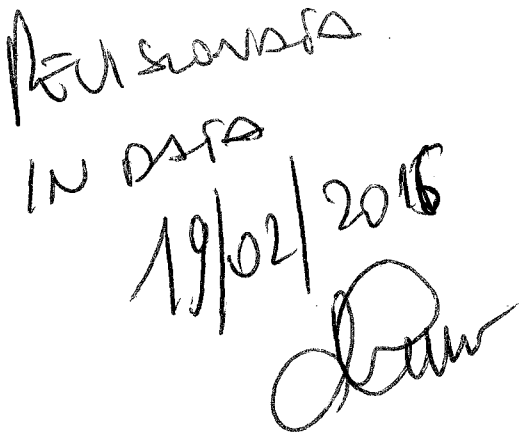 REVISIONATA
IN DATA
19/02/2016